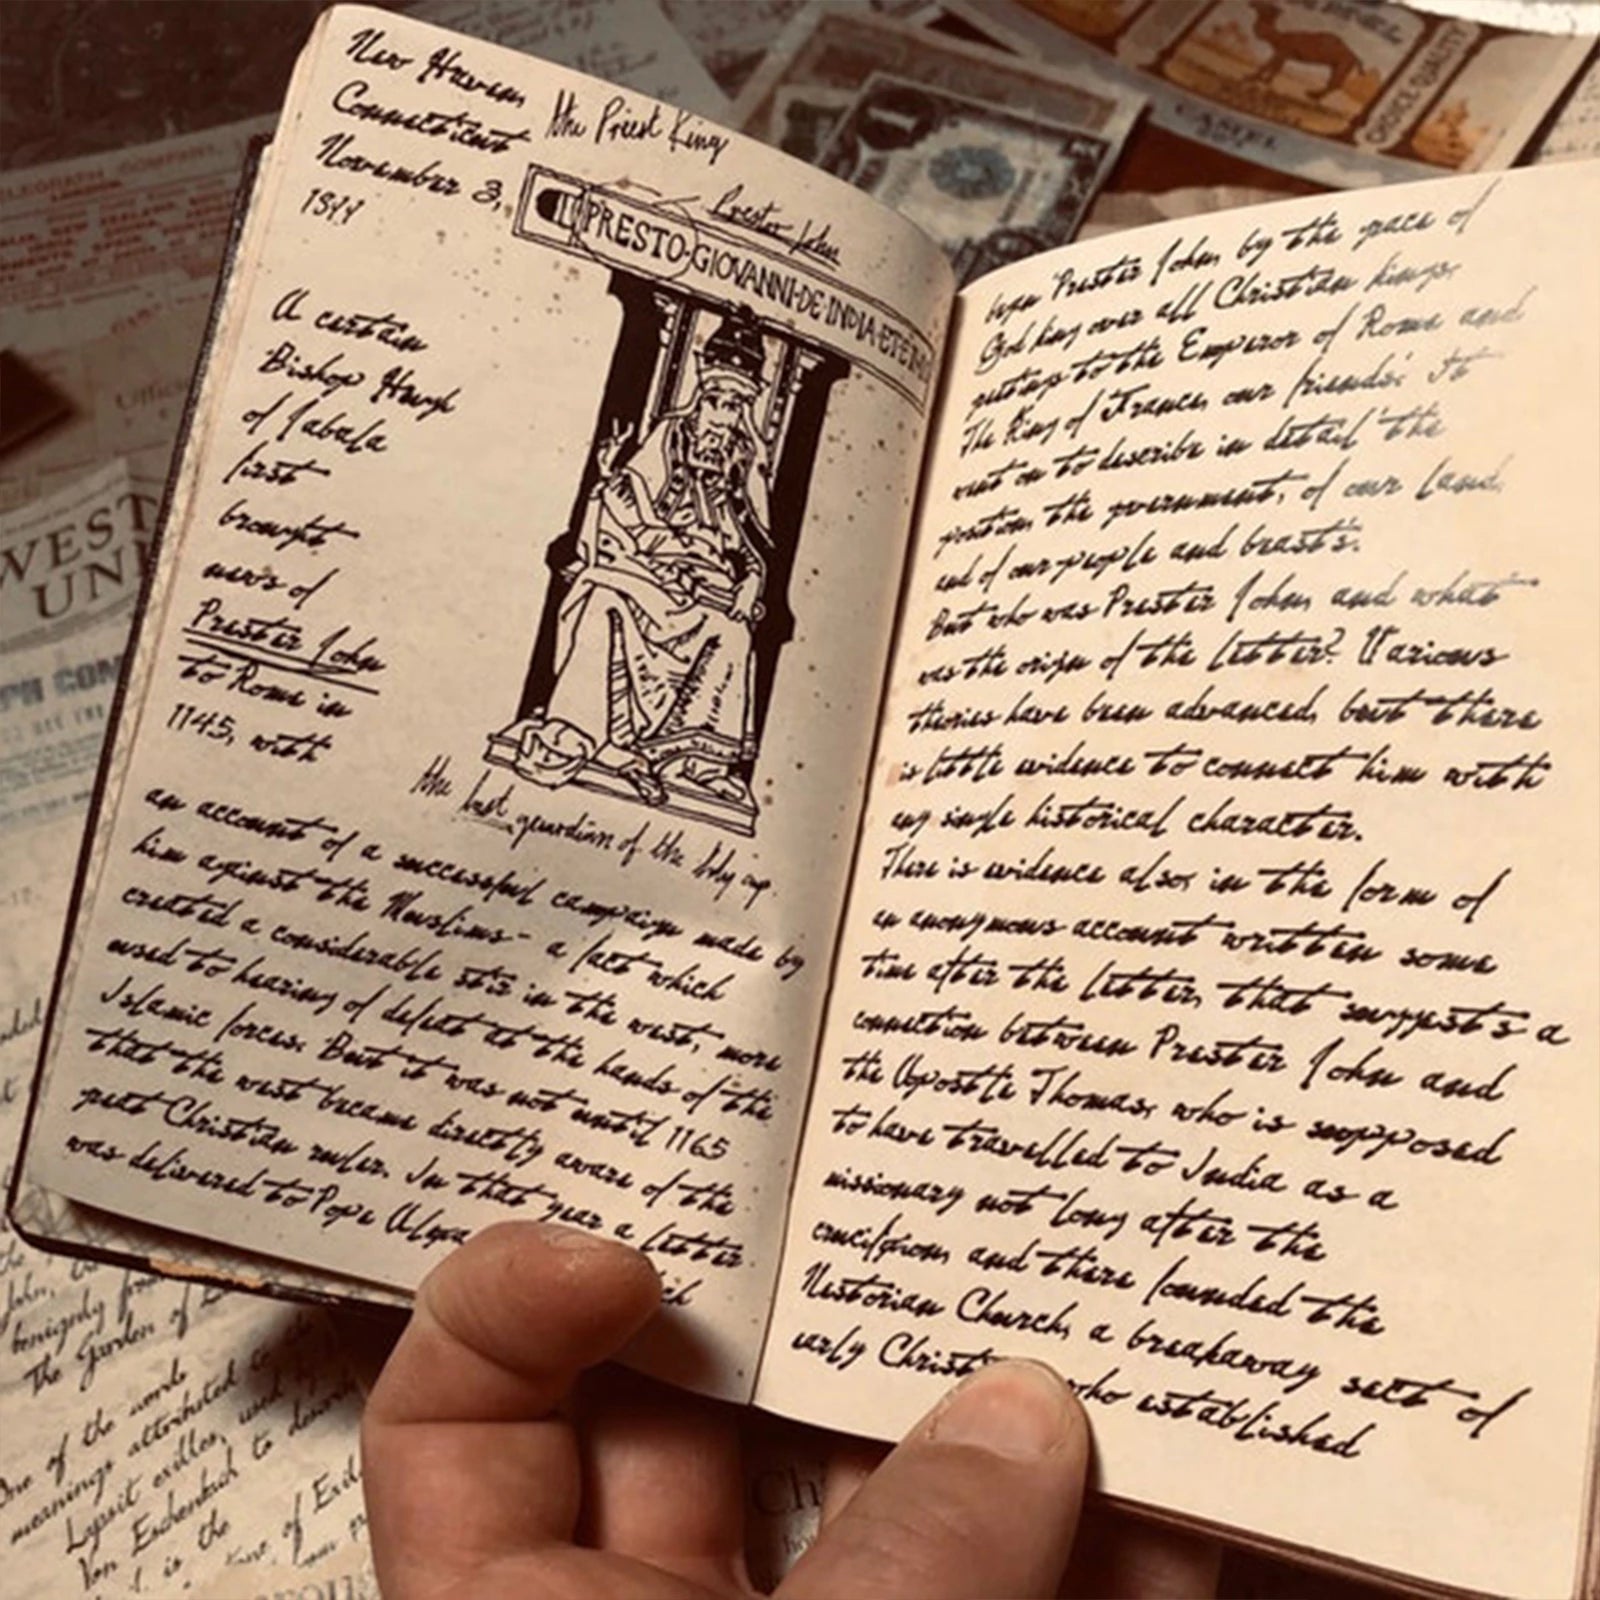 New Haven,
Connecticut
November 3,
the Priest King
Prester John
PRESTO·GIOVANNI·DE·INDIA·ET·
A certain
Bishop Hugh
of Jabala
first
brought
news of
Prester John
to Rome in
1145, with
the last guardian of the holy cup.
an account of a successful campaign made by
him against the Muslims - a fact which
created a considerable stir in the west, more
used to hearing of defeat at the hands of the
Islamic forces. But it was not until 1165
that the west became directly aware of the
great Christian ruler. In that year a letter
was delivered to Pope
began 'Prester John, by the grace of
God king over all Christian kings,
greetings to the Emperor of Rome and
The King of France, our friends.' It
went on to describe in detail 'the
position, the government, of our land,
and of our people and beasts'.
But who was Prester John, and what
was the origin of the letter? Various
theories have been advanced, but there
is little evidence to connect him with
any single historical character.
There is evidence also, in the form of
an anonymous account written some
time after the letter, that suggests a
connection between Prester John and
the Apostle Thomas, who is supposed
to have travelled to India as a
missionary not long after the
crucifixion, and there founded the
Nestorian Church, a breakaway sect of
early who established
CHOICE QUALITY
1
WEST
UN
TELEGRAPH COMPANY
PH COM
John,
benignly
The Garden of
One of the words
meanings attributed to the
Lapsit exilles, used by
Von Eschenbach to describe
is the
of Exil